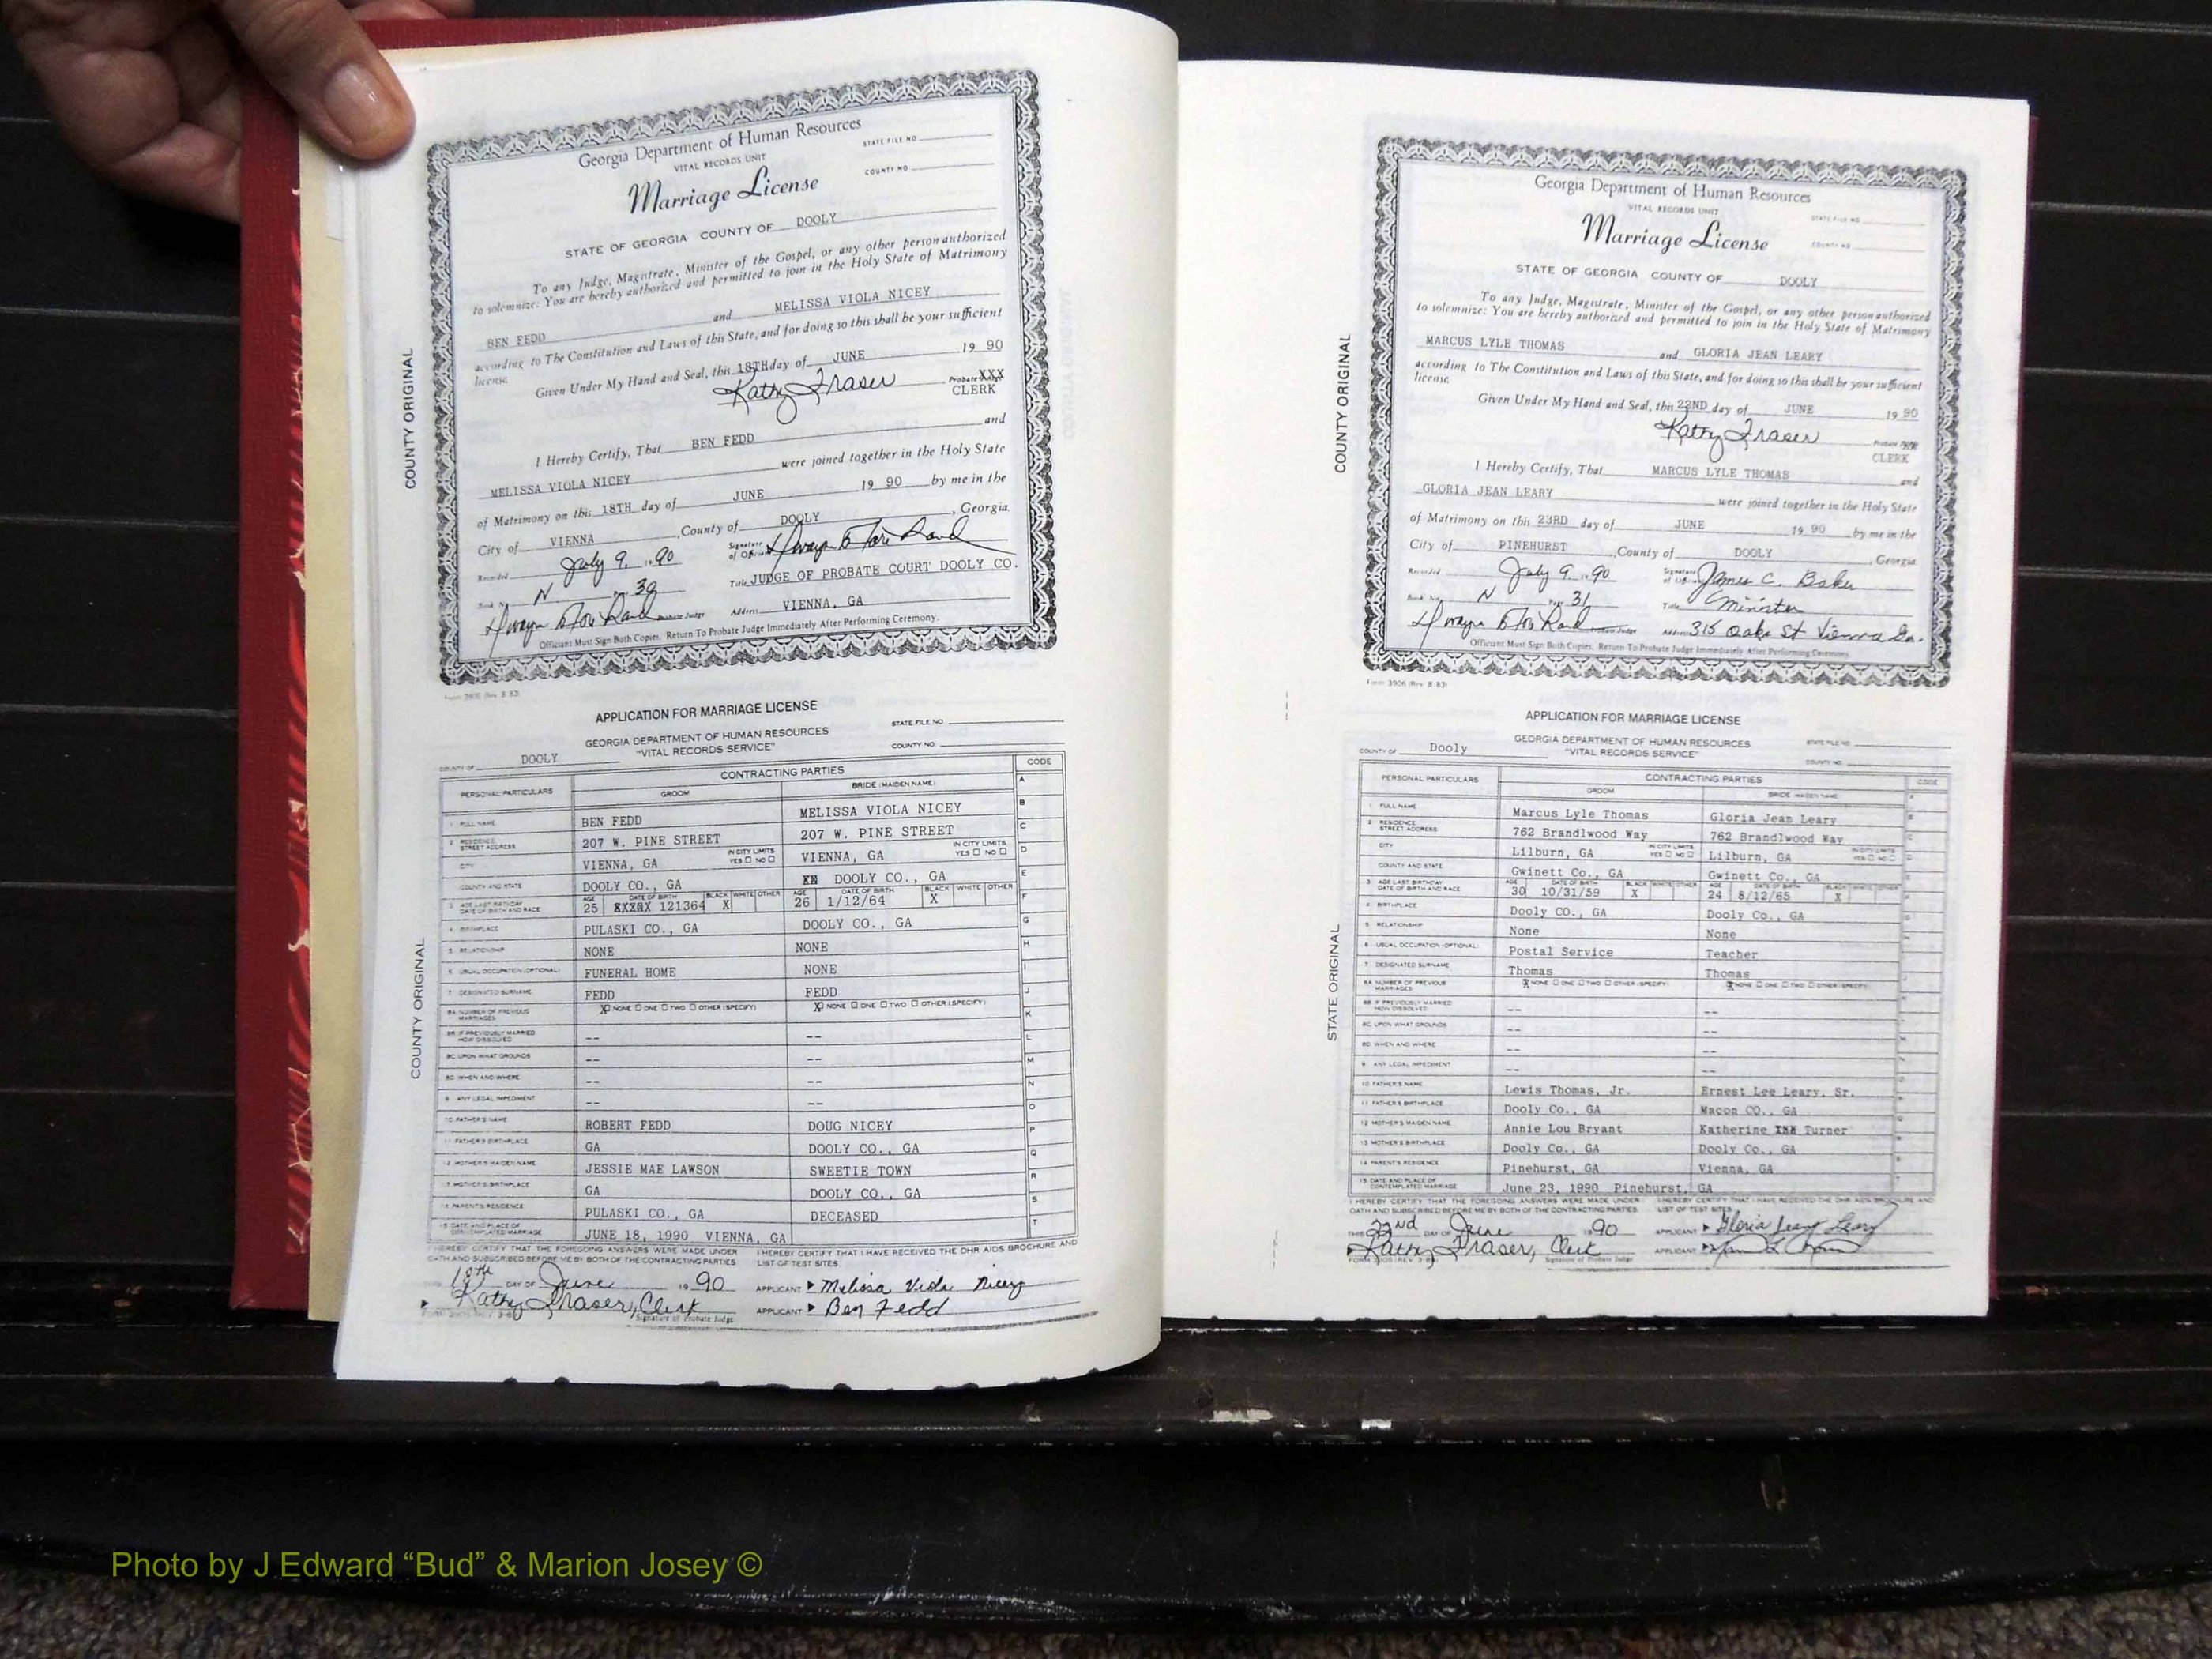 Georgia Department of Human Resources
VITAL RECORDS UNIT
STATE FILE NO
Marriage License
COUNTY NO
STATE OF GEORGIA COUNTY OF DOOLY
To any Judge, Magistrate, Minister of the Gospel, or any other person authorized
to solemnize: You are hereby authorized and permitted to join in the Holy State of Matrimony
BEN FEDD and MELISSA VIOLA NICEY
according to The Constitution and Laws of this State, and for doing so this shall be your sufficient
license.
Given Under My Hand and Seal, this 18TH day of JUNE 19 90
Kathy Fraser Probate XXX
CLERK
I Hereby Certify, That BEN FEDD and
MELISSA VIOLA NICEY were joined together in the Holy State
of Matrimony on this 18TH day of JUNE 19 90 by me in the
City of VIENNA, County of DOOLY, Georgia.
Recorded July 9, 1990 Signature of Official
Book No. N 30 Title JUDGE OF PROBATE COURT DOOLY CO.
Probate Judge Address VIENNA, GA
Officiant Must Sign Both Copies. Return To Probate Judge Immediately After Performing Ceremony.
COUNTY ORIGINAL
APPLICATION FOR MARRIAGE LICENSE
GEORGIA DEPARTMENT OF HUMAN RESOURCES
"VITAL RECORDS SERVICE"
STATE FILE NO
COUNTY NO.
COUNTY OF DOOLY
PERSONAL PARTICULARS CONTRACTING PARTIES CODE
GROOM BRIDE (MAIDEN NAME)
1 FULL NAME BEN FEDD MELISSA VIOLA NICEY
2 RESIDENCE STREET ADDRESS 207 W. PINE STREET 207 W. PINE STREET
CITY VIENNA, GA IN CITY LIMITS YES ☐ NO ☐ VIENNA, GA IN CITY LIMITS YES ☐ NO ☐
COUNTY AND STATE DOOLY CO., GA DOOLY CO., GA
3 AGE LAST BIRTHDAY DATE OF BIRTH AND RACE AGE 25 DATE OF BIRTH 121364 BLACK X WHITE OTHER AGE 26 DATE OF BIRTH 1/12/64 BLACK X WHITE OTHER
4 BIRTHPLACE PULASKI CO., GA DOOLY CO., GA
5 RELATIONSHIP NONE NONE
6 USUAL OCCUPATION (OPTIONAL) FUNERAL HOME NONE
7 DESIGNATED SURNAME FEDD FEDD
8A NUMBER OF PREVIOUS MARRIAGES X NONE ☐ ONE ☐ TWO ☐ OTHER (SPECIFY) X NONE ☐ ONE ☐ TWO ☐ OTHER (SPECIFY)
8B IF PREVIOUSLY MARRIED HOW DISSOLVED -- --
8C UPON WHAT GROUNDS -- --
8D WHEN AND WHERE -- --
9 ANY LEGAL IMPEDIMENT -- --
10 FATHER'S NAME ROBERT FEDD DOUG NICEY
11 FATHER'S BIRTHPLACE GA DOOLY CO., GA
12 MOTHER'S MAIDEN NAME JESSIE MAE LAWSON SWEETIE TOWN
13 MOTHER'S BIRTHPLACE GA DOOLY CO., GA
14 PARENT'S RESIDENCE PULASKI CO., GA DECEASED
15 DATE AND PLACE OF CONTEMPLATED MARRIAGE JUNE 18, 1990 VIENNA, GA
A
B
C
D
E
F
G
H
I
J
K
L
M
N
O
P
Q
R
S
T
I HEREBY CERTIFY THAT THE FOREGOING ANSWERS WERE MADE UNDER OATH AND SUBSCRIBED BEFORE ME BY BOTH OF THE CONTRACTING PARTIES.
I HEREBY CERTIFY THAT I HAVE RECEIVED THE DHR AIDS BROCHURE AND LIST OF TEST SITES.
18th DAY OF June 19 90 APPLICANT Melissa Viola Nicey
Kathy Fraser, Clerk APPLICANT Ben Fedd
Signature of Probate Judge
COUNTY ORIGINAL
Georgia Department of Human Resources
VITAL RECORDS UNIT
STATE FILE NO
Marriage License
COUNTY NO
STATE OF GEORGIA COUNTY OF DOOLY
To any Judge, Magistrate, Minister of the Gospel, or any other person authorized
to solemnize: You are hereby authorized and permitted to join in the Holy State of Matrimony
MARCUS LYLE THOMAS and GLORIA JEAN LEARY
according to The Constitution and Laws of this State, and for doing so this shall be your sufficient
license.
Given Under My Hand and Seal, this 22ND day of JUNE 19 90
Kathy Fraser Probate
CLERK
I Hereby Certify, That MARCUS LYLE THOMAS and
GLORIA JEAN LEARY were joined together in the Holy State
of Matrimony on this 23RD day of JUNE 19 90 by me in the
City of PINEHURST, County of DOOLY, Georgia
Recorded July 9 1990 Signature of Official James C. Baker
Book No. N Page 31 Title Minister
Probate Judge Address 315 Oake St Vienna Ga.
Officiant Must Sign Both Copies. Return To Probate Judge Immediately After Performing Ceremony.
Form 3906 (Rev. 8-83)
COUNTY ORIGINAL
APPLICATION FOR MARRIAGE LICENSE
GEORGIA DEPARTMENT OF HUMAN RESOURCES
"VITAL RECORDS SERVICE"
STATE FILE NO
COUNTY NO.
COUNTY OF Dooly
PERSONAL PARTICULARS CONTRACTING PARTIES CODE
GROOM BRIDE (MAIDEN NAME)
1 FULL NAME Marcus Lyle Thomas Gloria Jean Leary
2 RESIDENCE STREET ADDRESS 762 Brandlwood Way 762 Brandlwood Way
CITY Lilburn, GA IN CITY LIMITS YES ☐ NO ☐ Lilburn, GA IN CITY LIMITS YES ☐ NO ☐
COUNTY AND STATE Gwinett Co., GA Gwinett Co., GA
3 AGE LAST BIRTHDAY DATE OF BIRTH AND RACE AGE 30 DATE OF BIRTH 10/31/59 BLACK X WHITE OTHER AGE 24 DATE OF BIRTH 8/12/65 BLACK X WHITE OTHER
4 BIRTHPLACE Dooly CO., GA Dooly Co., GA
5 RELATIONSHIP None None
6 USUAL OCCUPATION (OPTIONAL) Postal Service Teacher
7 DESIGNATED SURNAME Thomas Thomas
8A NUMBER OF PREVIOUS MARRIAGES X NONE ☐ ONE ☐ TWO ☐ OTHER (SPECIFY) X NONE ☐ ONE ☐ TWO ☐ OTHER (SPECIFY)
8B IF PREVIOUSLY MARRIED HOW DISSOLVED -- --
8C UPON WHAT GROUNDS -- --
8D WHEN AND WHERE -- --
9 ANY LEGAL IMPEDIMENT -- --
10 FATHER'S NAME Lewis Thomas, Jr. Ernest Lee Leary, Sr.
11 FATHER'S BIRTHPLACE Dooly Co., GA Macon CO., GA
12 MOTHER'S MAIDEN NAME Annie Lou Bryant Katherine Turner
13 MOTHER'S BIRTHPLACE Dooly Co., GA Dooly Co., GA
14 PARENT'S RESIDENCE Pinehurst, GA Vienna, GA
15 DATE AND PLACE OF CONTEMPLATED MARRIAGE June 23, 1990 Pinehurst, GA
I HEREBY CERTIFY THAT THE FOREGOING ANSWERS WERE MADE UNDER OATH AND SUBSCRIBED BEFORE ME BY BOTH OF THE CONTRACTING PARTIES.
I HEREBY CERTIFY THAT I HAVE RECEIVED THE DHR AIDS BROCHURE AND LIST OF TEST SITES
THIS 22nd DAY OF June 1990 APPLICANT Gloria Jean Leary
Kathy Fraser, Clerk APPLICANT
Signature of Probate Judge
STATE ORIGINAL
Photo by J Edward “Bud” & Marion Josey ©